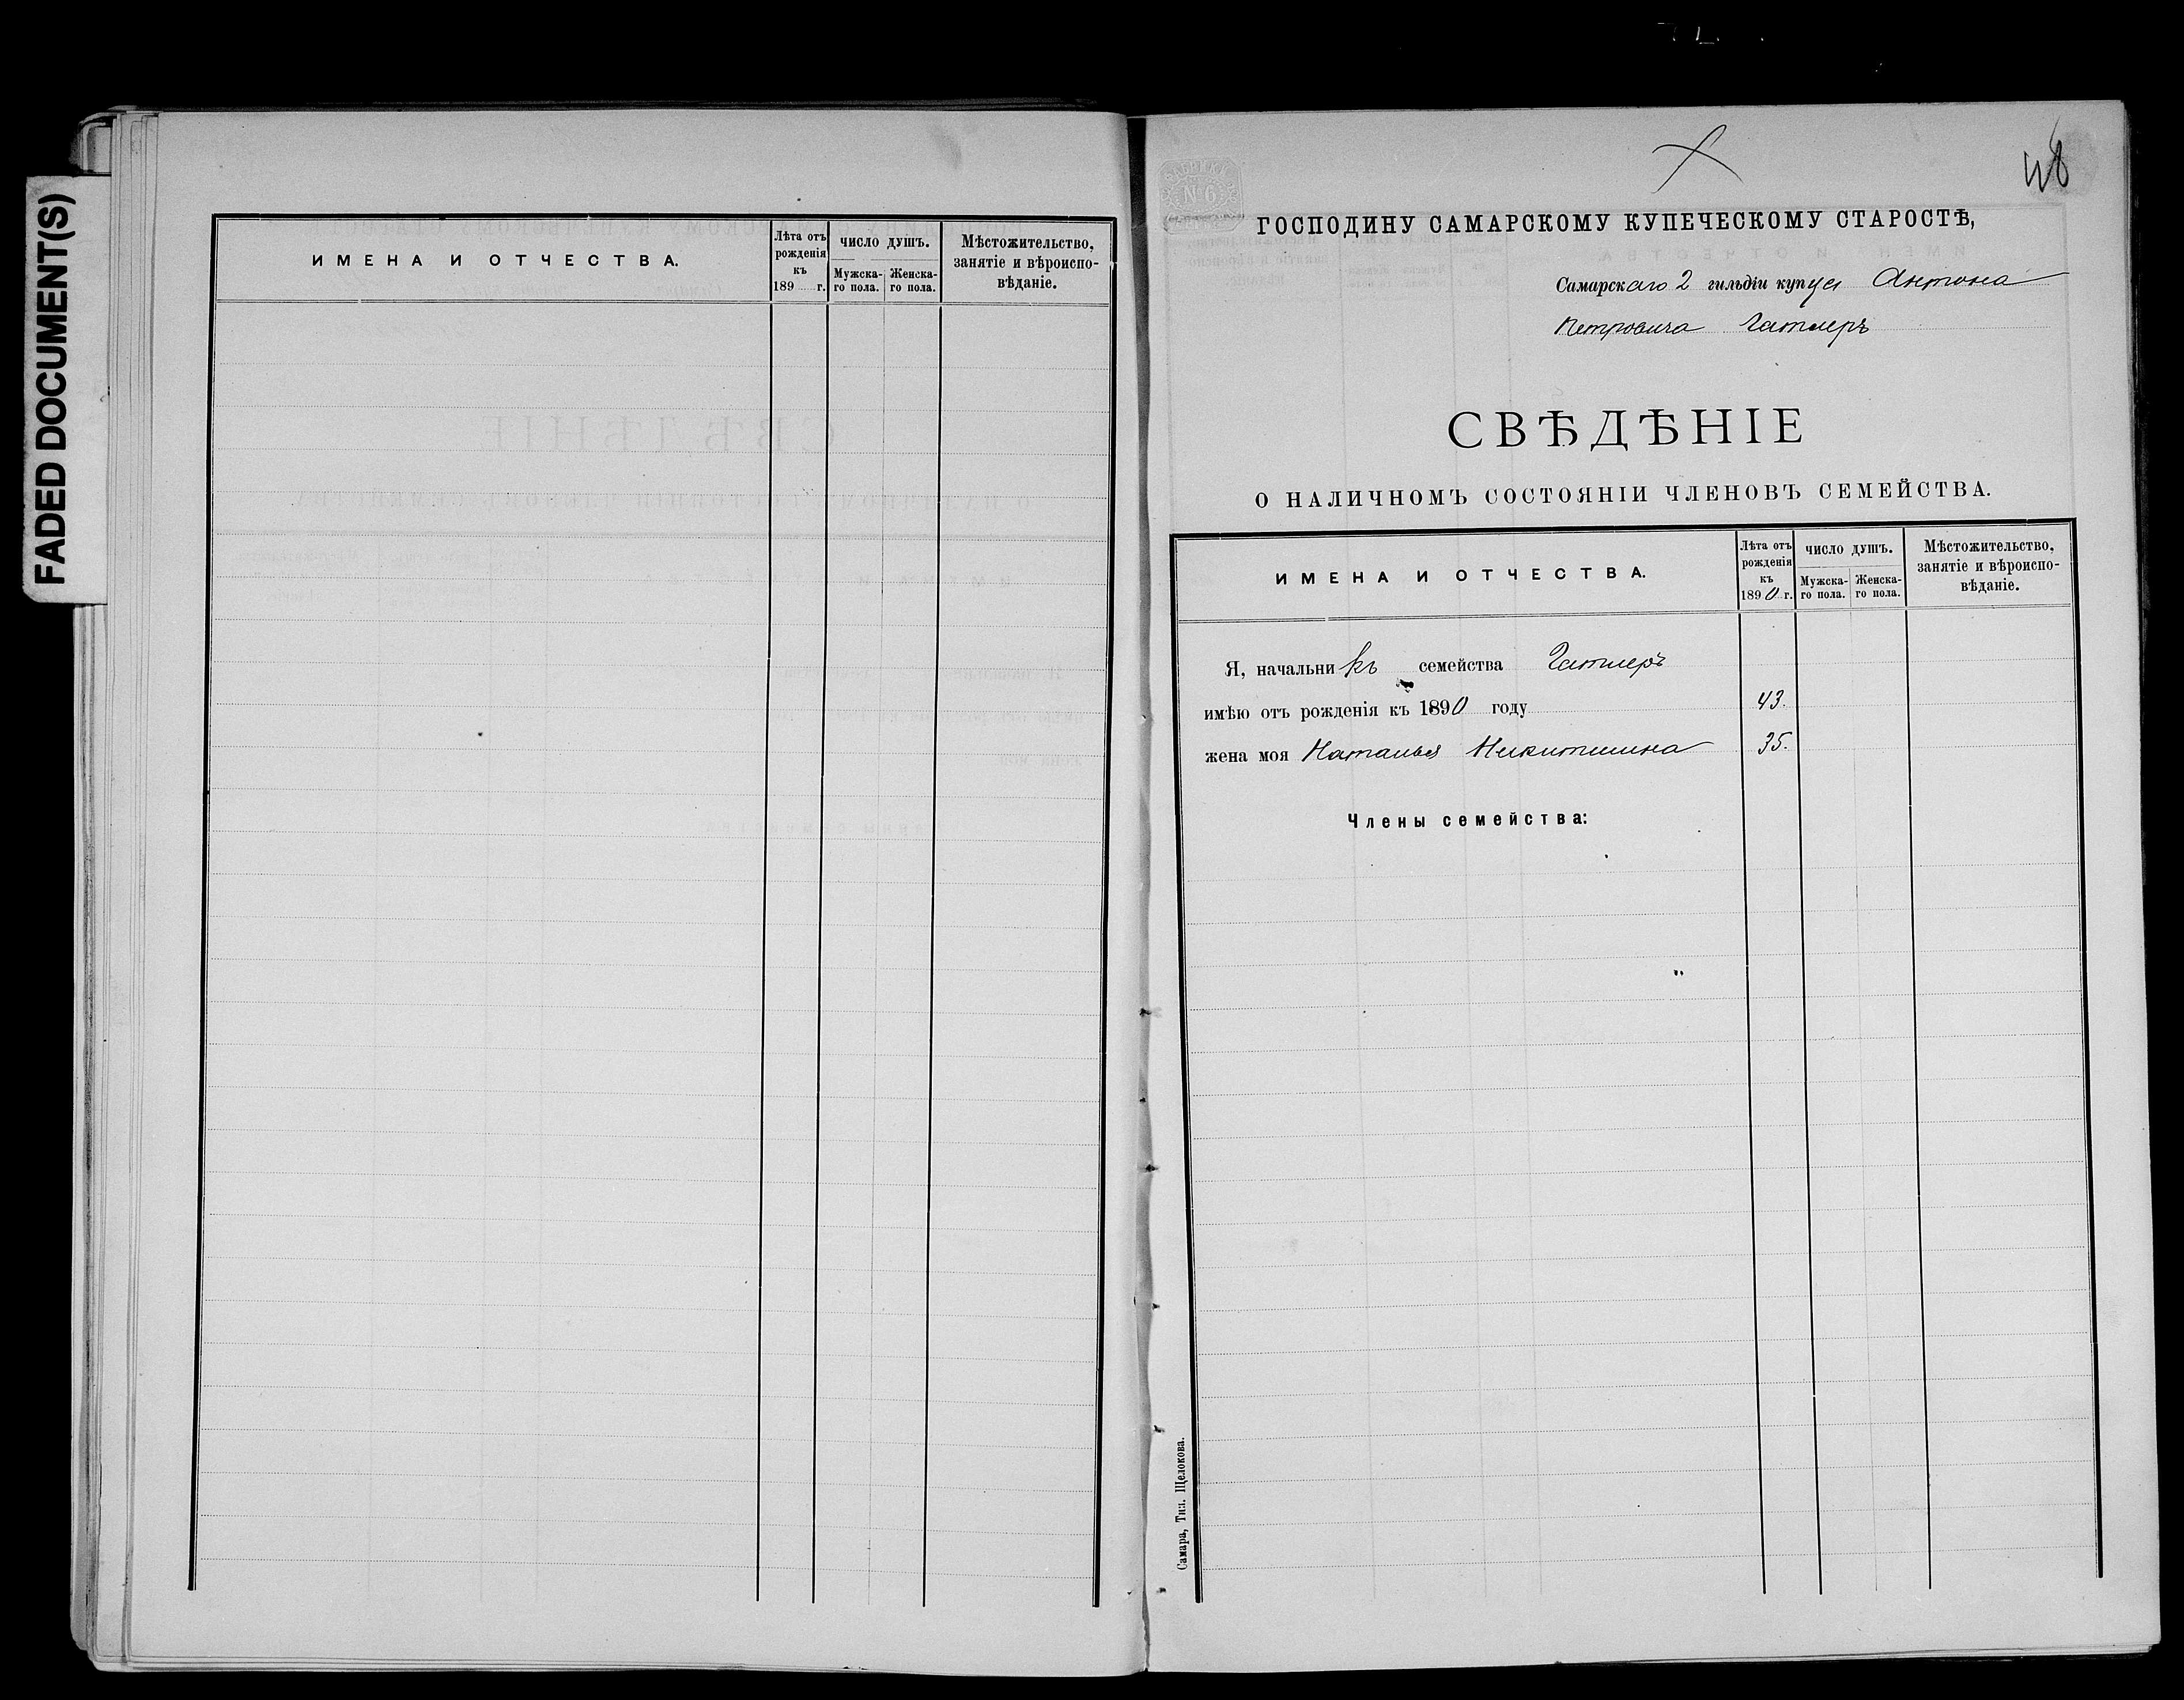 FADED DOCUMENT(S)
ИМЕНА И ОТЧЕСТВА.
Лѣта отъ рожденія къ 189 г.
ЧИСЛО ДУШЪ.
Мужска-го пола.
Женска-го пола.
Мѣстожительство, занятіе и вѣроиспо-вѣданіе.
48
№ 6
ГОСПОДИНУ САМАРСКОМУ КУПЕЧЕСКОМУ СТАРОСТѢ,
Самарскаго 2 гильдіи купца Антона
Петровича
СВѢДѢНІЕ
О НАЛИЧНОМЪ СОСТОЯНІИ ЧЛЕНОВЪ СЕМЕЙСТВА.
ИМЕНА И ОТЧЕСТВА.
Лѣта отъ рожденія къ 1890 г.
ЧИСЛО ДУШЪ.
Мужска-го пола.
Женска-го пола.
Мѣстожительство, занятіе и вѣроиспо-вѣданіе.
Я, начальникъ семейства
имѣю отъ рожденія къ 1890 году 43.
жена моя Наталья Никитишна 35.
Члены семейства:
Самара, Тип. Щелокова.